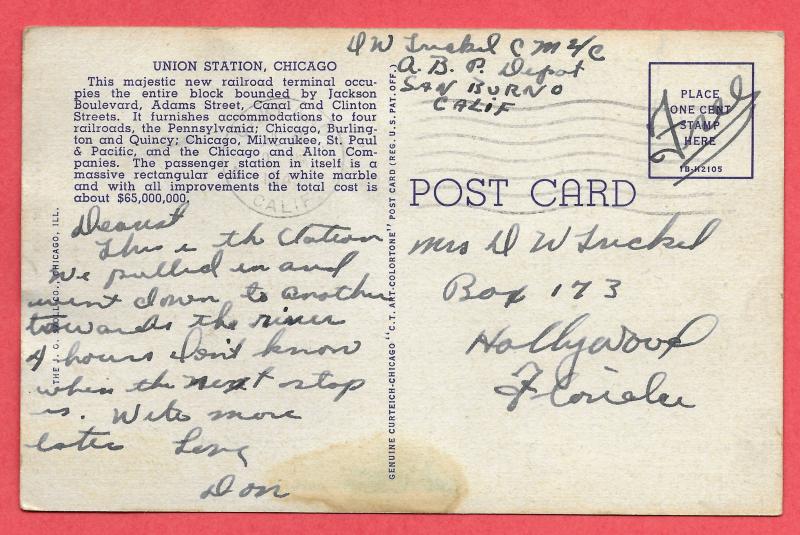 D W Trickel C M 2/C
A. B. P. Depot
SAN BURNO
CALIF
UNION STATION, CHICAGO
This majestic new railroad terminal occu-
pies the entire block bounded by Jackson
Boulevard, Adams Street, Canal and Clinton
Streets. It furnishes accommodations to four
railroads, the Pennsylvania; Chicago, Burling-
ton and Quincy; Chicago, Milwaukee, St. Paul
& Pacific, and the Chicago and Alton Com-
panies. The passenger station in itself is a
massive rectangular edifice of white marble
and with all improvements the total cost is
about $65,000,000.
CALIF
Dearest
This is the Station
we pulled in and
went down to another
towards the river
4 hours don't know
when the next stop
is. Write more
later Love
Don
THE J. O. STOLL CO., CHICAGO, ILL.
GENUINE CURTEICH-CHICAGO "C.T. ART-COLORTONE" POST CARD (REG. U.S. PAT. OFF.)
PLACE
ONE CENT
STAMP
HERE
7B-H2105
Free
POST CARD
Mrs D W Trickel
Box 173
Hollywood
Florida